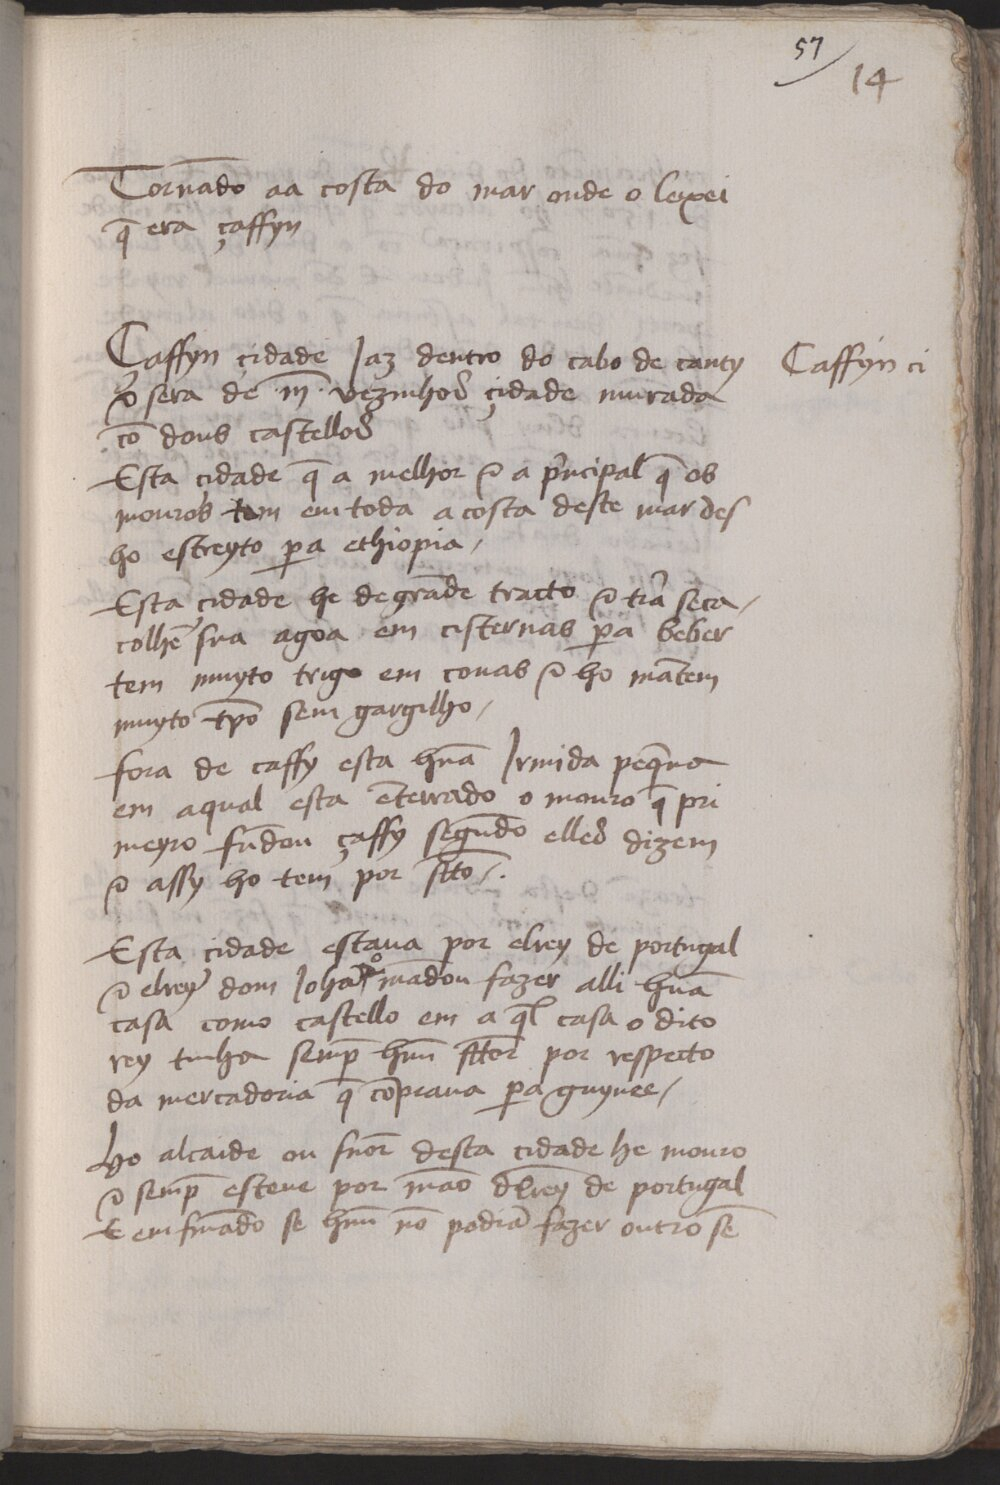 57
14
Tornãdo aa costa do mar onde o leyxei
q̃ era çaffyn
Çaffyn çidade Jaz dentro do cabo de canty
Çaffyn ci
⁊ sera de .iij̄. vezinhos çidade murada
cõ dous castellos
Esta çidade q̃ a melhor ⁊ a p̃ncipal q̃ os
mouros tem em toda a costa deste mar des
ho estreyto pera ethiopia /
Esta çidade he de grãde tracto ⁊ trã seca /
colhẽ sua agoa em cisternas pera beber
tem muyto trigo em covas ⁊ ho mãtem
muyto tp̃o sem gargulho /
fora de çaffy esta hũa Irmida peq̃na
em aqual esta ẽterrado o mouro q̃ pri
meyro fũdou çaffy segũdo elles dizem
⁊ assy ho tem por s̃to /.
Esta çidade estaua por elrey de portugal
⁊ elrey dom Johã 2º mãdou fazer alli hũa
casa como castello em a q̃l casa o dito
rey tinha semp̃ hũu f̃tor por respecto
da mercadoria q̃ cõpraua pera guynee /
Ho alcaide ou sñor desta cidade he mouro
⁊ semp̃ esteue por mão delrey de portugal
E em finãdo se hũu nõ podiã fazer outro sẽ